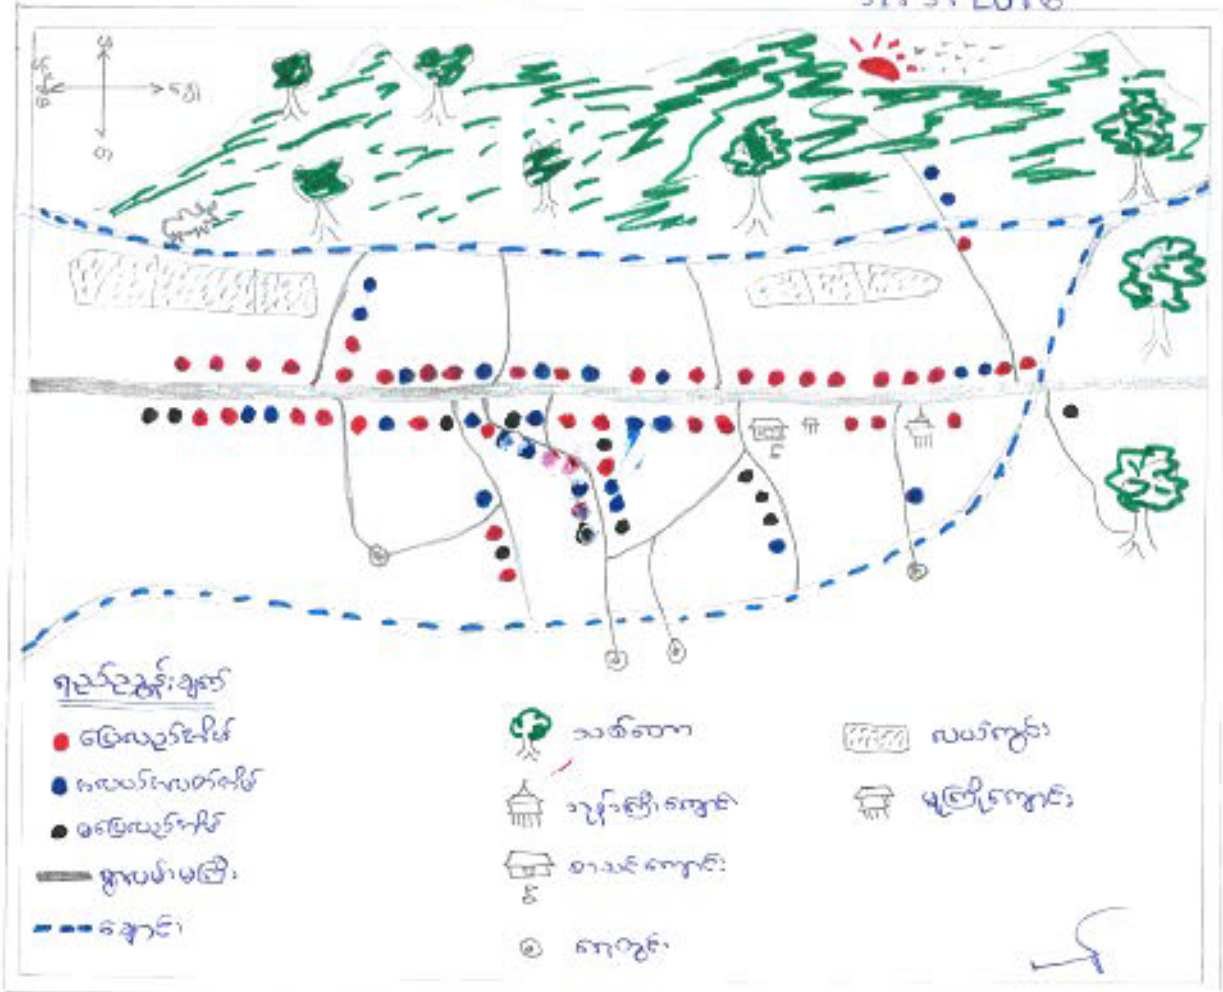 ရည်ညွှန်းချက်
ပြေလည်အိမ်
အလယ်အလတ်အိမ်
မပြေလည်အိမ်
ရွာလမ်းမကြီး
ချောင်း
သစ်တော
ဘုန်းကြီးကျောင်း
စာသင်ကျောင်း
ရေတွင်း
လယ်ကွင်း
မူကြိုကျောင်း